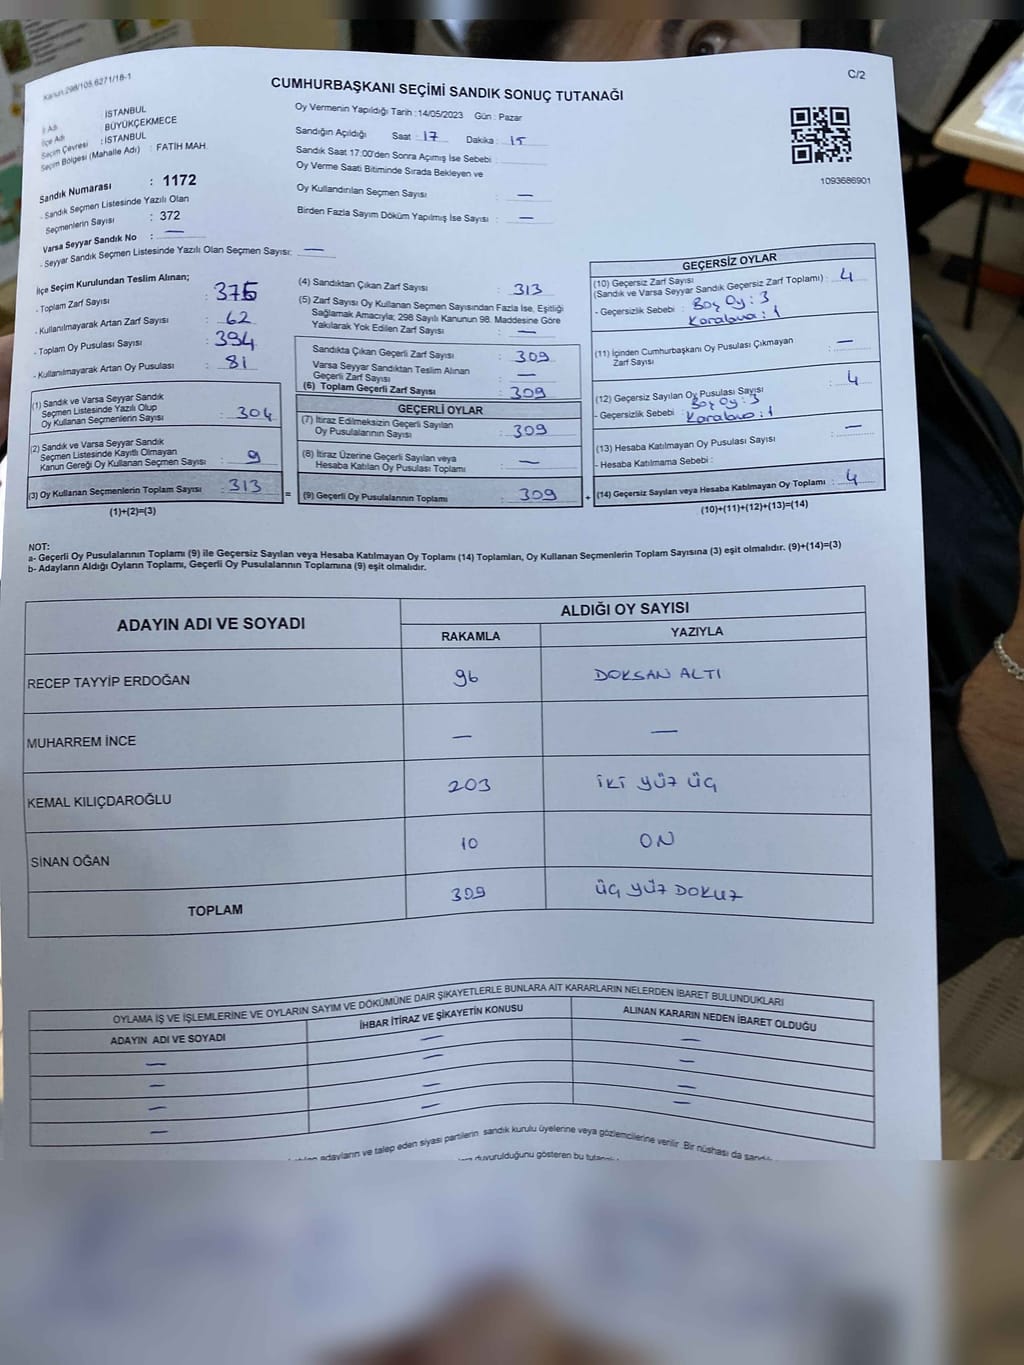 Kanun:298/105,6271/18-1
C/2
CUMHURBAŞKANI SEÇİMİ SANDIK SONUÇ TUTANAĞI
İl Adı : İSTANBUL
İlçe Adı : BÜYÜKÇEKMECE
Seçim Çevresi : İSTANBUL
Seçim Bölgesi (Mahalle Adı) : FATİH MAH.
Sandık Numarası : 1172
- Sandık Seçmen Listesinde Yazılı Olan
Seçmenlerin Sayısı : 372
Varsa Seyyar Sandık No : —
- Seyyar Sandık Seçmen Listesinde Yazılı Olan Seçmen Sayısı: —
Oy Vermenin Yapıldığı Tarih : 14/05/2023 Gün : Pazar
Sandığın Açıldığı Saat : 17 Dakika : 15
Sandık Saat 17:00'den Sonra Açımış İse Sebebi :
Oy Verme Saati Bitiminde Sırada Bekleyen ve
Oy Kullandırılan Seçmen Sayısı : —
Birden Fazla Sayım Döküm Yapılmış İse Sayısı : —
1093686901
İlçe Seçim Kurulundan Teslim Alınan;
- Toplam Zarf Sayısı : 375
- Kullanılmayarak Artan Zarf Sayısı : 62
- Toplam Oy Pusulası Sayısı : 394
- Kullanılmayarak Artan Oy Pusulası : 81
(1) Sandık ve Varsa Seyyar Sandık
Seçmen Listesinde Yazılı Olup
Oy Kullanan Seçmenlerin Sayısı : 304
(2) Sandık ve Varsa Seyyar Sandık
Seçmen Listesinde Kayıtlı Olmayan
Kanun Gereği Oy Kullanan Seçmen Sayısı : 9
(3) Oy Kullanan Seçmenlerin Toplam Sayısı : 313
(1)+(2)=(3)
=
(4) Sandıktan Çıkan Zarf Sayısı : 313
(5) Zarf Sayısı Oy Kullanan Seçmen Sayısından Fazla İse, Eşitliği
Sağlamak Amacıyla; 298 Sayılı Kanunun 98. Maddesine Göre
Yakılarak Yok Edilen Zarf Sayısı : —
Sandıkta Çıkan Geçerli Zarf Sayısı : 309
Varsa Seyyar Sandıktan Teslim Alınan
Geçerli Zarf Sayısı : —
(6) Toplam Geçerli Zarf Sayısı : 309
GEÇERLİ OYLAR
(7) İtiraz Edilmeksizin Geçerli Sayılan
Oy Pusulalarının Sayısı : 309
(8) İtiraz Üzerine Geçerli Sayılan veya
Hesaba Katılan Oy Pusulası Toplamı : —
(9) Geçerli Oy Pusulalarının Toplamı : 309
+
GEÇERSİZ OYLAR
(10) Geçersiz Zarf Sayısı
(Sandık ve Varsa Seyyar Sandık Geçersiz Zarf Toplamı) : 4
- Geçersizlik Sebebi : Boş Oy : 3
Karalama : 1
(11) İçinden Cumhurbaşkanı Oy Pusulası Çıkmayan
Zarf Sayısı : —
(12) Geçersiz Sayılan Oy Pusulası Sayısı : 4
- Geçersizlik Sebebi : Boş Oy : 3
Karalama : 1
(13) Hesaba Katılmayan Oy Pusulası Sayısı : —
- Hesaba Katılmama Sebebi :
(14) Geçersiz Sayılan veya Hesaba Katılmayan Oy Toplamı : 4
(10)+(11)+(12)+(13)=(14)
NOT:
a- Geçerli Oy Pusulalarının Toplamı (9) ile Geçersiz Sayılan veya Hesaba Katılmayan Oy Toplamı (14) Toplamları, Oy Kullanan Seçmenlerin Toplam Sayısına (3) eşit olmalıdır. (9)+(14)=(3)
b- Adayların Aldığı Oyların Toplamı, Geçerli Oy Pusulalarının Toplamına (9) eşit olmalıdır.
ADAYIN ADI VE SOYADI
ALDIĞI OY SAYISI
RAKAMLA YAZIYLA
RECEP TAYYİP ERDOĞAN 96 DOKSAN ALTI
MUHARREM İNCE — —
KEMAL KILIÇDAROĞLU 203 İKİ YÜZ ÜÇ
SİNAN OĞAN 10 ON
TOPLAM 309 ÜÇ YÜZ DOKUZ
OYLAMA İŞ VE İŞLEMLERİNE VE OYLARIN SAYIM VE DÖKÜMÜNE DAİR ŞİKAYETLERLE BUNLARA AİT KARARLARIN NELERDEN İBARET BULUNDUKLARI
ADAYIN ADI VE SOYADI İHBAR İTİRAZ VE ŞİKAYETİN KONUSU ALINAN KARARIN NEDEN İBARET OLDUĞU
— — —
— — —
— — —
— — —
adayların ve talep eden siyasi partilerin sandık kurulu üyelerine veya gözlemcilerine verilir. Bir nüshası da
duyurulduğunu gösteren bu